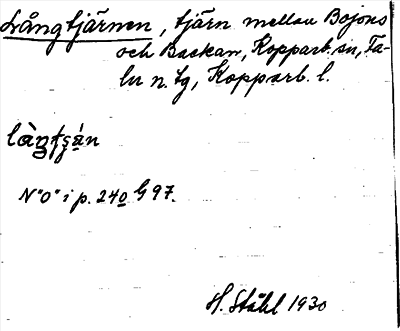 Långtjärnen, tjärn mellan Bojons
och Backan, Kopparb. sn, Fa-
lu n. tg, Kopparb. l.
N "O" i p. 240 G 97.
H. Ståhl 1930